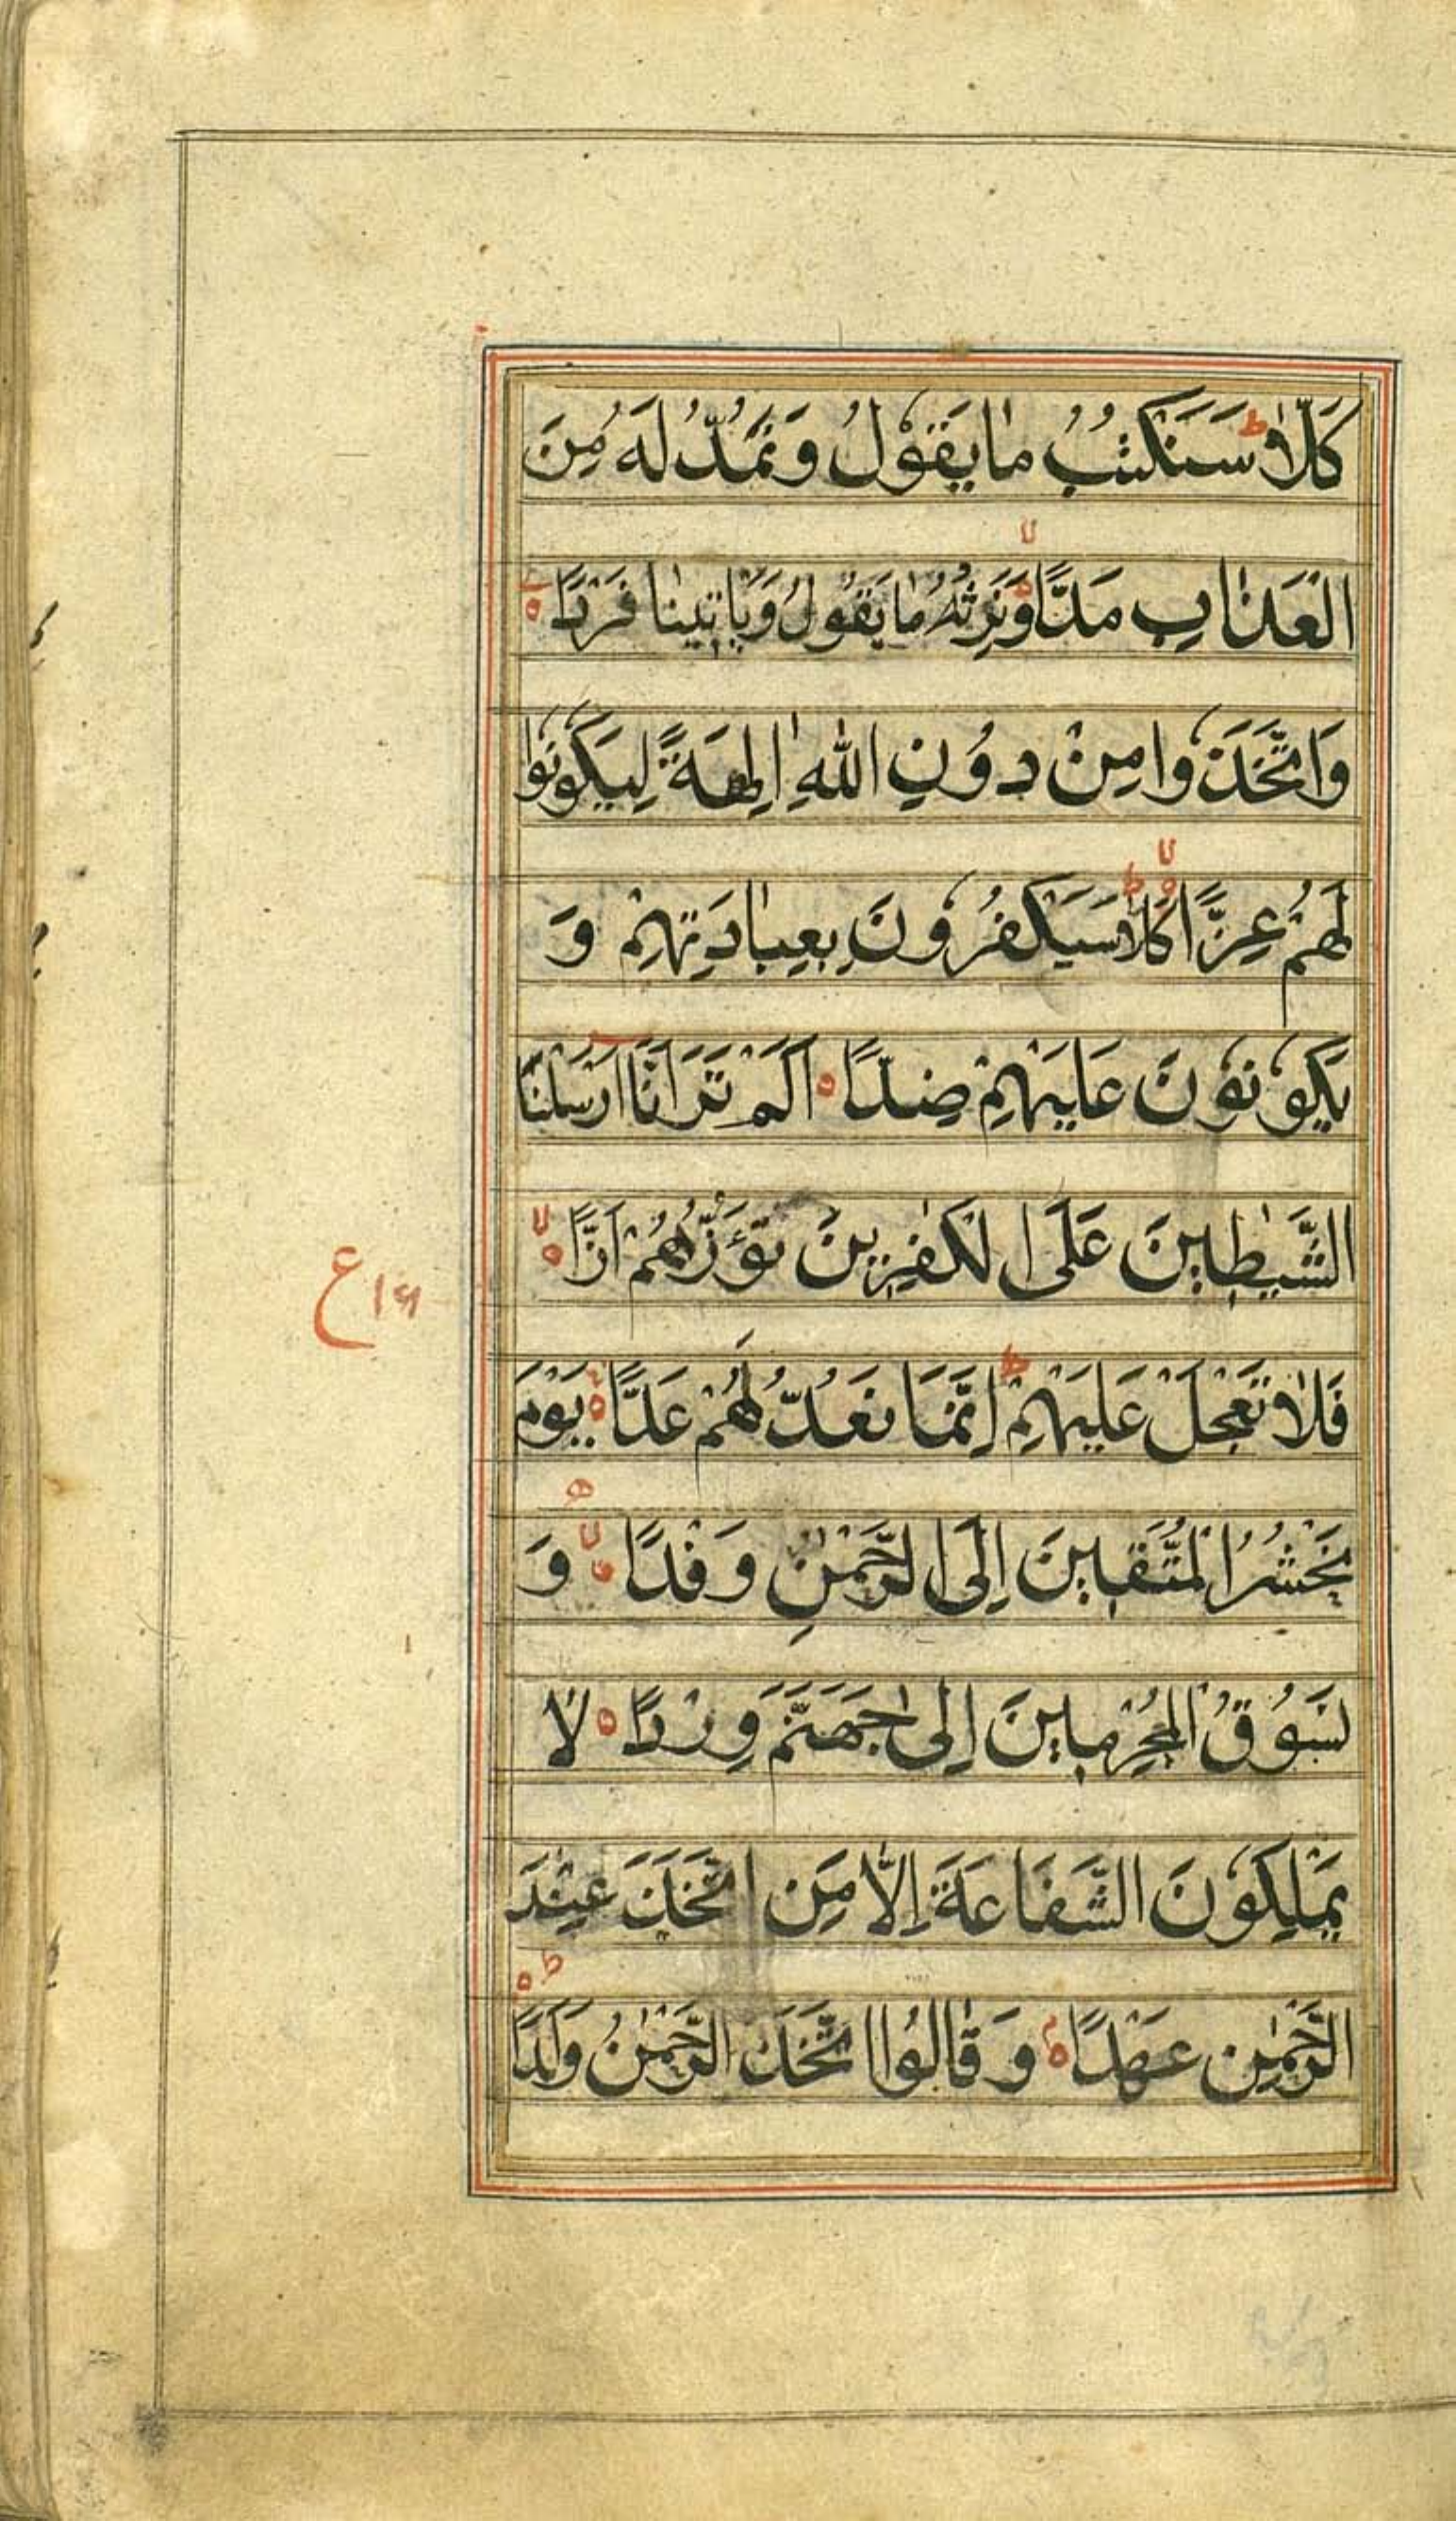 كَلَّا ط سَنَكْتُبُ مَا يَقُولُ وَنَمُدُّ لَهُ مِنَ
الْعَذَابِ مَدًّا لا وَّنَرِثُهُ مَا يَقُولُ وَيَأْتِينَا فَرْدًا ه
وَاتَّخَذُوا مِنْ دُونِ اللّٰهِ اٰلِهَةً لِيَكُونُوا
لَهُمْ عِزًّا لا كَلَّا ط سَيَكْفُرُونَ بِعِبَادَتِهِمْ وَ
يَكُونُونَ عَلَيْهِمْ ضِدًّا ه اَلَمْ تَرَ اَنَّا اَرْسَلْنَا
الشَّيٰطِينَ عَلَى الْكٰفِرِينَ تَؤُزُّهُمْ اَزًّا لا ه
ع
فَلَا تَعْجَلْ عَلَيْهِمْ ط اِنَّمَا نَعُدُّ لَهُمْ عَدًّا ه يَوْمَ
نَحْشُرُ الْمُتَّقِينَ اِلَى الرَّحْمٰنِ وَفْدًا لا ه وَ
نَسُوقُ الْمُجْرِمِينَ اِلٰى جَهَنَّمَ وِرْدًا ه لَا
يَمْلِكُونَ الشَّفَاعَةَ اِلَّا مَنِ اتَّخَذَ عِنْدَ
الرَّحْمٰنِ عَهْدًا م ه وَقَالُوا اتَّخَذَ الرَّحْمٰنُ وَلَدًا ط ه